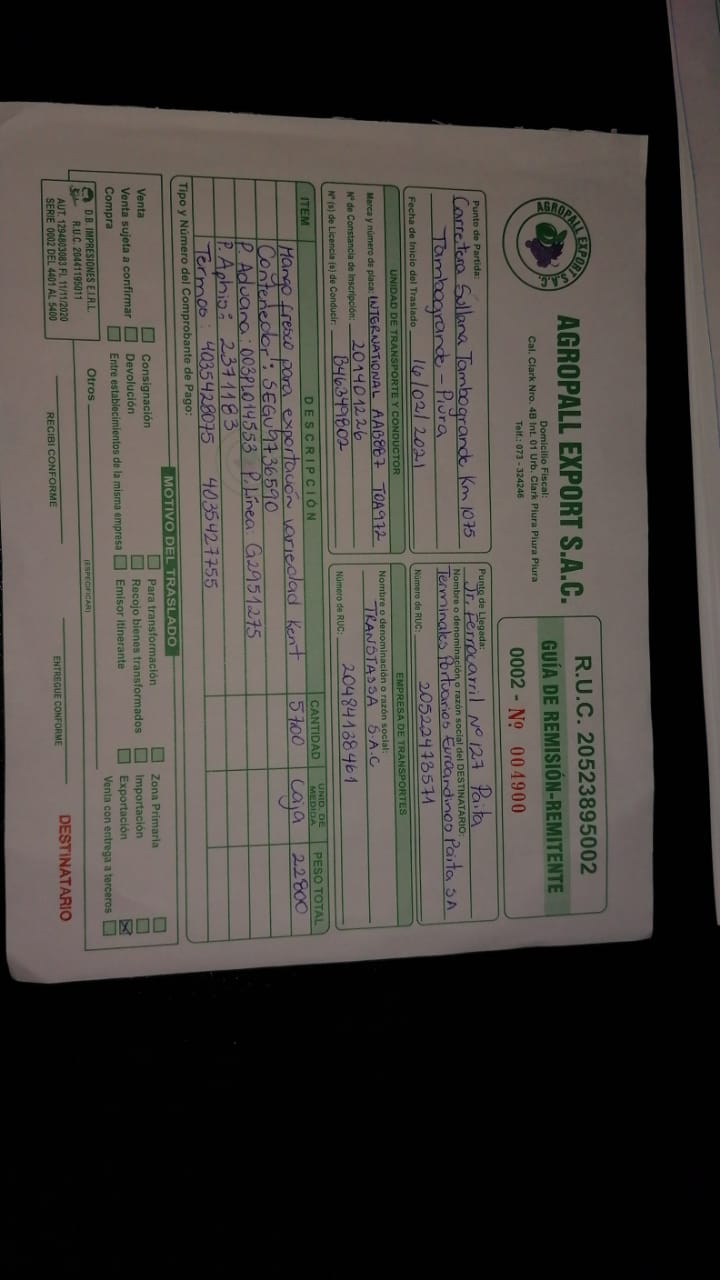 AGROPALL EXPORT S.A.C.
AGROPALL EXPORT S.A.C.
Domicilio Fiscal:
Cal. Clark Nro. 4B Int. 01 Urb. Clark Piura Piura Piura
Telf.: 073 - 324246
R.U.C. 20523895002
GUÍA DE REMISIÓN-REMITENTE
0002 - Nº 004900
Punto de Partida:
Carretera Sullana Tambogrande Km 1075
Tambogrande - Piura
Fecha de Inicio del Traslado 16/02/2021
Punto de Llegada:
Jr. Ferrocarril Nº 127 Paita
Nombre o denominación o razón social del DESTINATARIO:
Terminales Portuarios Euroandinos Paita SA
Número de RUC: 20522473571
UNIDAD DE TRANSPORTE Y CONDUCTOR
Marca y número de placa: INTERNATIONAL AAB887 T0A972
Nº de Constancia de Inscripción: 201401226
Nº (s) de Licencia (s) de Conducir: B46349802
EMPRESA DE TRANSPORTES
Nombre o denominación o razón social:
TRANSTASSA S.A.C
Número de RUC: 20484138461
ITEM DESCRIPCIÓN CANTIDAD UNID. DE MEDIDA PESO TOTAL
Mango fresco para exportación variedad Kent 5700 Caja 22800
Contenedor: SEGU9736590
P. Aduana: 003PL014553 P. Línea: G2951275
P. Aphis: 2371183
Termos: 4035428075 4035427755
Tipo y Número del Comprobante de Pago:
MOTIVO DEL TRASLADO
Venta Consignación Para transformación Zona Primaria
Venta sujeta a confirmar Devolución Recojo bienes transformados Importación
Compra Entre establecimientos de la misma empresa Emisor itinerante Exportación
Venta con entrega a terceros
Otros
(ESPECIFICAR)
D.B. IMPRESIONES E.I.R.L.
R.U.C. 20441195011
AUT. 1294803083 FI. 11/11/2020
SERIE 0002 DEL 4401 AL 5400
RECIBI CONFORME
ENTREGUE CONFORME
DESTINATARIO